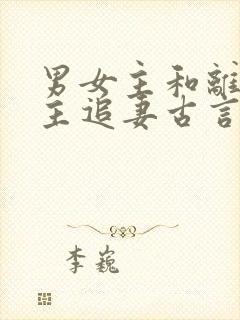 男女主和離
主追妻古言
李巍